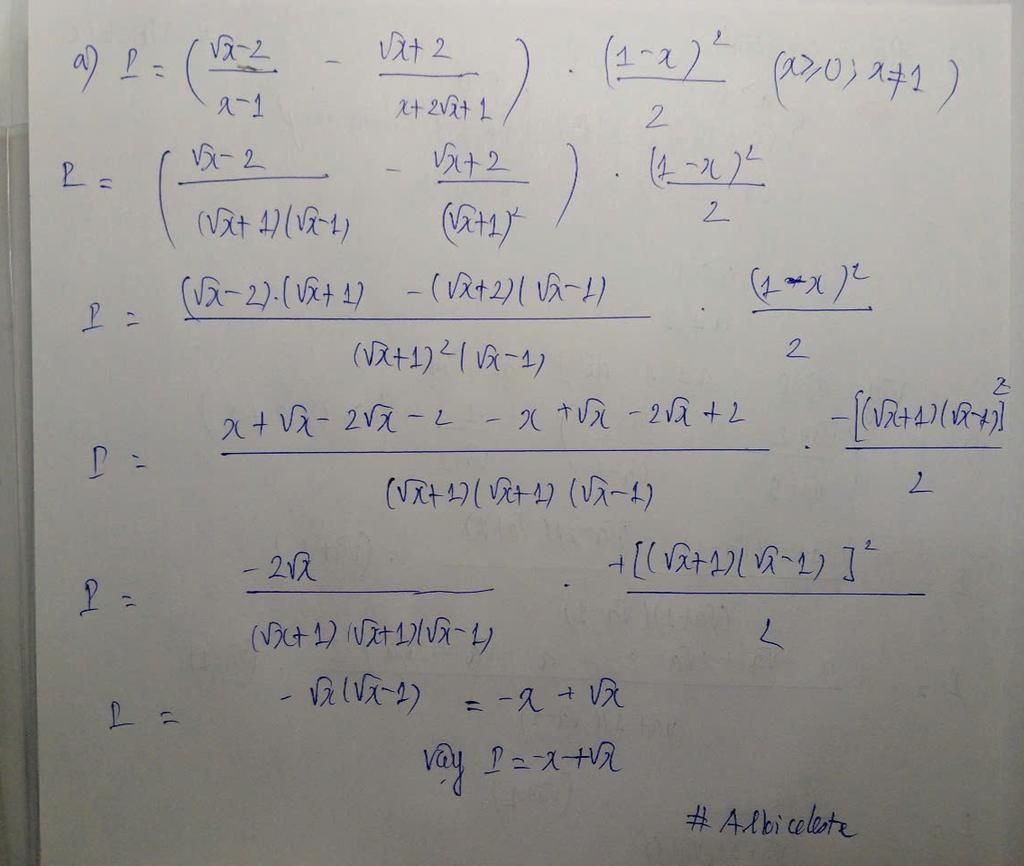 a) P = ( (√x-2)/(x-1) - (√x+2)/(x+2√x+1) ) . (1-x)²/2 (x≥0; x≠1)
P = ( (√x-2)/((√x+1)(√x-1)) - (√x+2)/(√x+1)² ) . (1-x)²/2
P = ((√x-2).(√x+1) -(√x+2)(√x-1))/((√x+1)²(√x-1)) . (1-x)²/2
P = (x+√x-2√x-2 - x+√x-2√x+2)/((√x+1)(√x+1)(√x-1)) . -[(√x+1)(√x-1)]²/2
P = -2√x/((√x+1)(√x+1)(√x-1)) . +[(√x+1)(√x-1)]²/2
P = -√x(√x-1) = -x+√x
vậy P=-x+√x
# Albiceleste